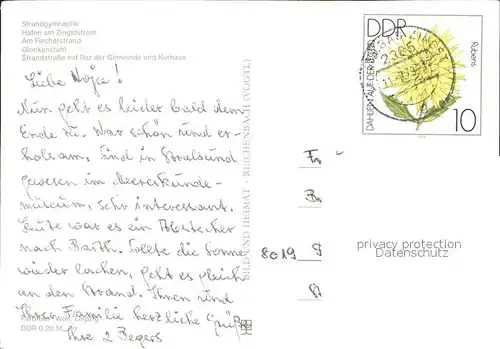 Strandgymnastik
Hafen am Zingststrom
Am Fischerstrand
Glockenstuhl
Strandstraße mit Rat der Gemeinde und Kurhaus
Liebe !
Nun geht es leider bald dem
Ende zu. War schön und er-
holsam. Sind in Stralsund
gewesen im Meereskunde-
museum, sehr interessant.
Heute war es ein Abstecher
nach Barth. Sollte die Sonne
wieder lachen, geht es gleich
an den Strand. Ihnen und
Ihrer Familie herzliche Grüße
Ihre 2 Begers
DDR 0,20 M
BILD UND HEIMAT · REICHENBACH (VOGTL)
DDR
DAHLIEN AUF DER
Rubens
10
2385
Fr
8019
privacy protection
Datenschutz